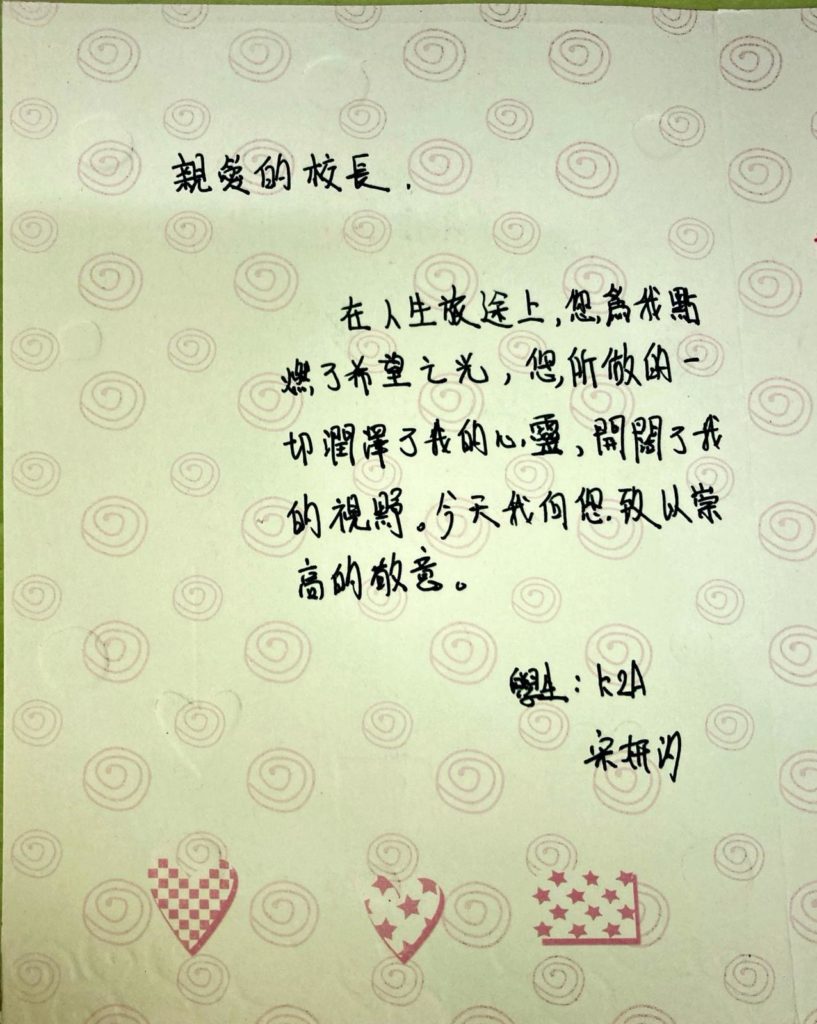 親愛的校長.
在人生旅途上,您為我點
燃了希望之光,您所做的一
切潤澤了我的心靈,開闊了我
的視野。今天我向您致以崇
高的敬意。
學生:K2A
宋妍